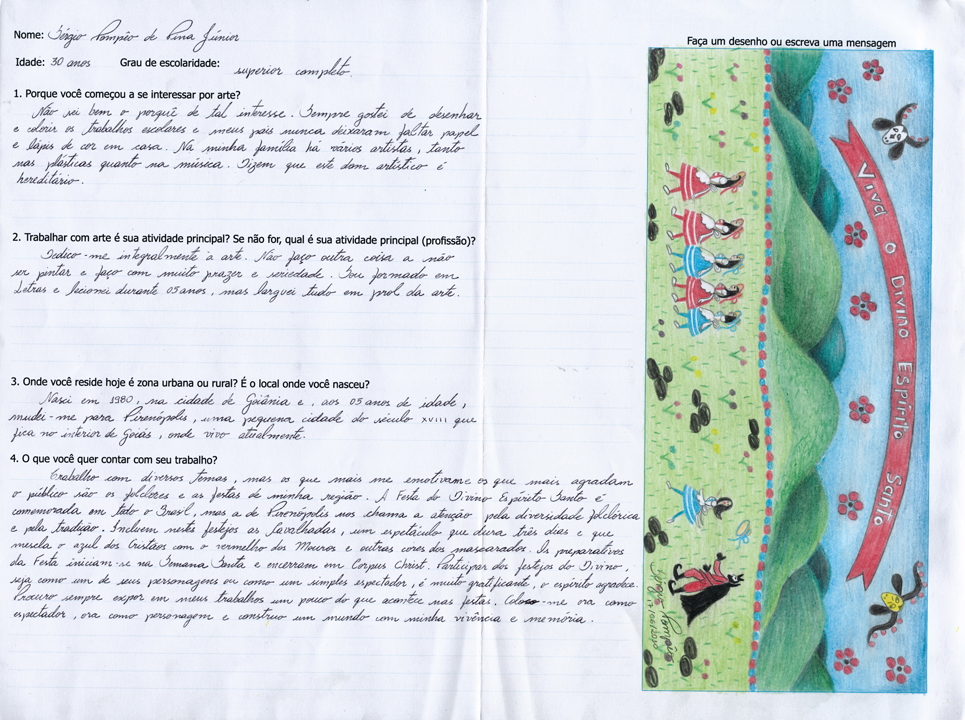 Nome: Sérgio Pompêo de Pina Júnior
Idade: 30 anos Grau de escolaridade: superior completo.
1. Porque você começou a se interessar por arte?
Não sei bem o porquê de tal interesse. Sempre gostei de desenhar
e colorir os trabalhos escolares e meus pais nunca deixaram faltar papel
e lápis de cor em casa. Na minha família há vários artistas, tanto
nas plásticas quanto na música. Dizem que este dom artístico é
hereditário.
2. Trabalhar com arte é sua atividade principal? Se não for, qual é sua atividade principal (profissão)?
Dedico-me integralmente à arte. Não faço outra coisa a não
ser pintar e faço com muito prazer e seriedade. Sou formado em
Letras e lecionei durante 05 anos, mas larguei tudo em prol da arte.
3. Onde você reside hoje é zona urbana ou rural? É o local onde você nasceu?
Nasci em 1980, na cidade de Goiânia e, aos 05 anos de idade,
mudei-me para Pirenópolis, uma pequena cidade do século XVIII que
fica no interior de Goiás, onde vivo atualmente.
4. O que você quer contar com seu trabalho?
Trabalho com diversos temas, mas os que mais me emotivam e os que mais agradam
o público são os folclores e as festas de minha região. A Festa do Divino Espírito Santo é
comemorada em todo o Brasil, mas a de Pirenópolis nos chama a atenção pela diversidade folclórica
e pela tradição. Incluem neste festejos as Cavalhadas, um espetáculo que dura três dias e que
mescla o azul dos Cristãos com o vermelho dos Mouros e outras cores dos mascarados. Os preparativos
da Festa iniciam-se na Semana Santa e encerram em Corpus Christ. Participar dos festejos do Divino,
seja como um de seus personagens ou como um simples espectador, é muito gratificante, o espírito agradece.
Procuro sempre expor em meus trabalhos um pouco do que acontece nas festas. Coloco-me ora como
espectador, ora como personagem e construo um mundo com minha vivência e memória.
Faça um desenho ou escreva uma mensagem
Viva o Divino Espírito Santo
Sérgio Pompêo